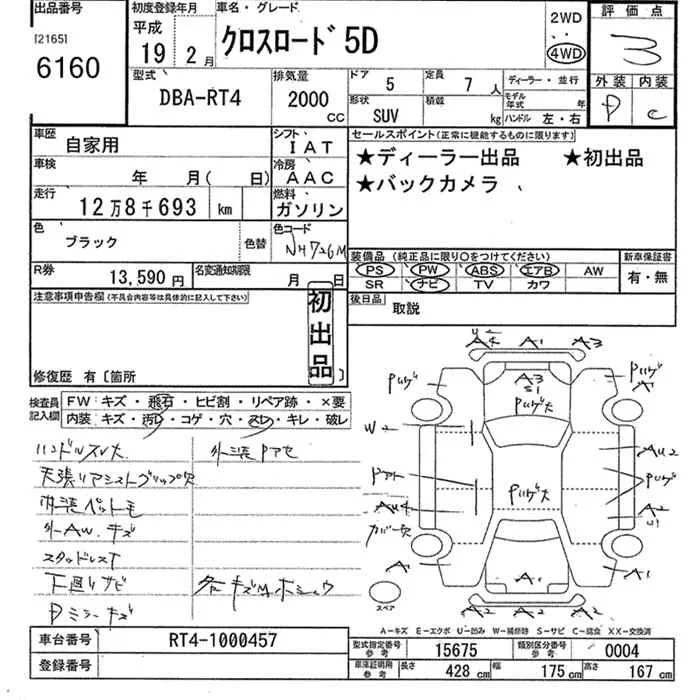 出品番号
[2165]
6160
初度登録年月
平成
19年 2月
車名・グレード
クロスロード 5D
2WD
4WD
評価点
3
外装 内装
D C
型式
DBA-RT4
排気量
2000 CC
ドア 5
定員 7人
形状 SUV
積載 kg
ディーラー・並行
モデル年式 年
ハンドル 左・右
車歴 自家用
シフト IAT
車検 年 月( 日)
冷房 AAC
走行 12万8千693 km
燃料 ガソリン
色 ブラック
色替
色コード NH726M
R券 13,590円
名変通知期限 月 日
セールスポイント(正常に機能するものに限ります)
★ディーラー出品 ★初出品
★バックカメラ
装備品 (純正品に限り○をつけてください)
PS PW ABS エアB AW
SR ナビ TV カワ
新車保証書
有・無
後日品 取説
注意事項申告欄(不具合内容等は具体的に記入して下さい)
初出品
修復歴 有〔箇所 〕
検査員記入欄
FW:キズ・飛石・ヒビ割・リペア跡・×要
内装:キズ・汚レ・コゲ・穴・スレ・キレ・破レ
ハンドルスレ大
外装Pアセ
天張リアシストグリップ穴
内装ペット毛
外AW.キズ
スタッドレスT
下廻りサビ
各キズM.ホシュウ
Dミラーキズ
U2
A4 A1 A3
Pリゲ
A3
S1
Pリゲ大
Pリゲ
A1
W2
AU2
Pリゲ大
Pリゲ
ドアハト
AU4
カバー欠
A2
U1
A1
A1
A1
スペア
A2 A2 A2
A-キズ E-エクボ U-凹み W-補修跡 S-サビ C-腐食 XX-交換済
車台番号 RT4-1000457
登録番号
型式指定番号 参考 15675
類別区分番号 参考 0004
車庫証明用 参考 長さ 428 cm 幅 175 cm 高さ 167 cm